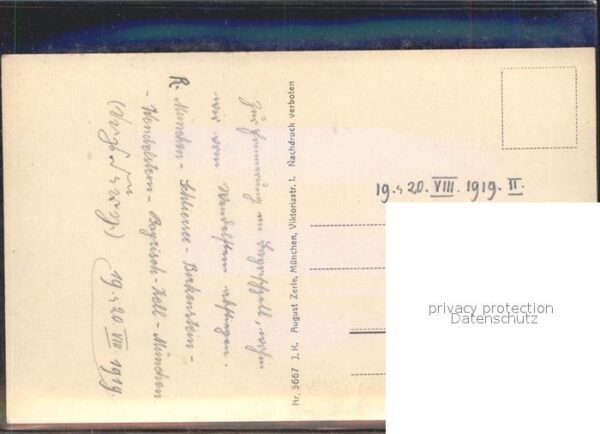 Zur Erinnerung an Bayrischzell, wohin
wir vom Wendelstein abstiegen.
R. München - Schliersee - Birkenstein -
- Wendelstein - Bayrisch-Zell - München
19. & 20. VIII 1919.
Nr. 5667 J. H. August Zerle, München, Viktoriastr. 1. Nachdruck verboten
19. & 20. VIII. 1919. II.
privacy protection
Datenschutz